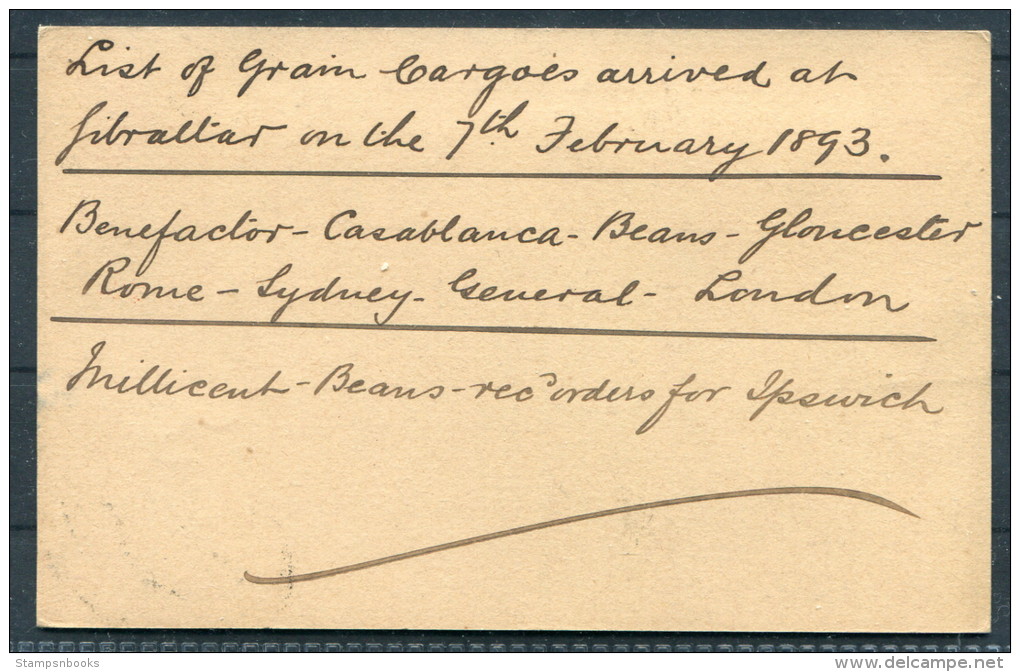 List of Grain Cargoes arrived at
Gibraltar on the 7th February 1893.
Benefactor - Casablanca - Beans - Gloucester
Rome - Sydney - General - London
Millicent - Beans - recd orders for Ipswich
Stampsnbooks
www.delcampe.net